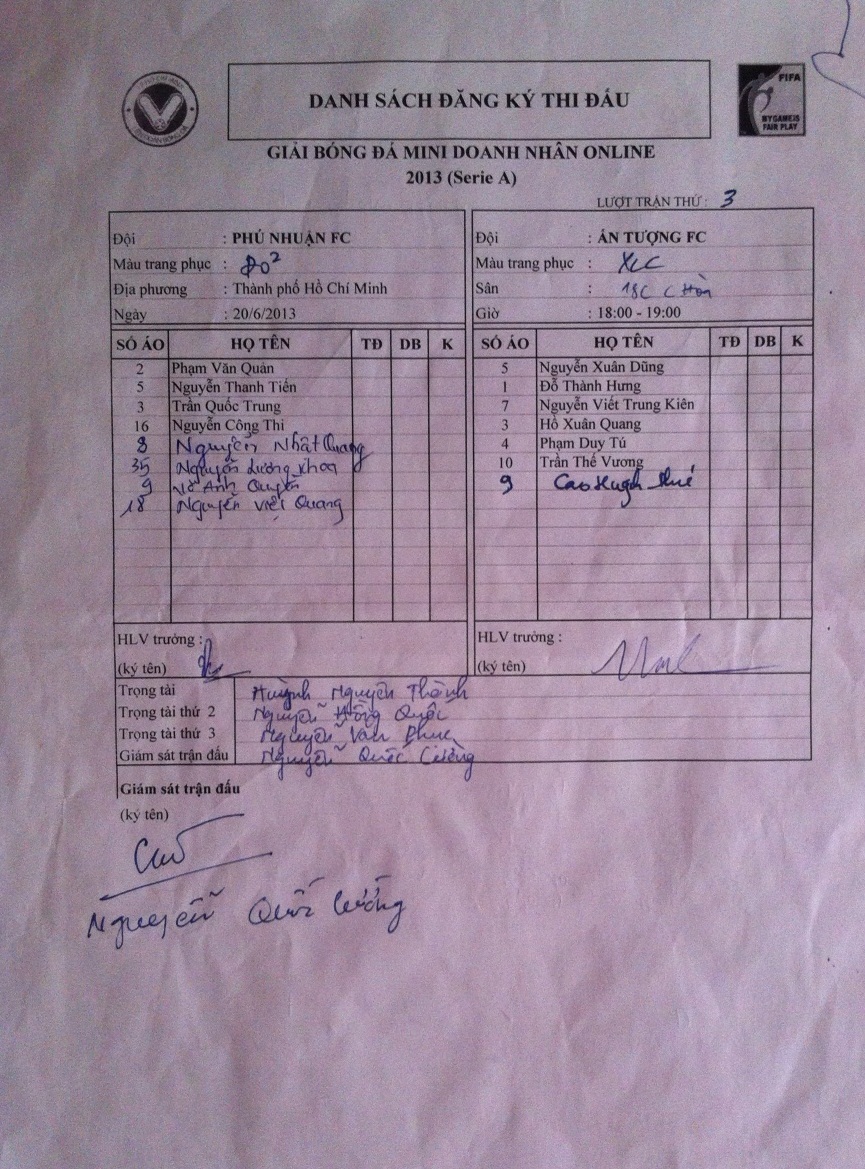 DANH SÁCH ĐĂNG KÝ THI ĐẤU
FIFA
MY GAME IS
FAIR PLAY
GIẢI BÓNG ĐÁ MINI DOANH NHÂN ONLINE
2013 (Serie A)
LƯỢT TRẬN THỨ : 3
Đội : PHÚ NHUẬN FC
Màu trang phục :
Địa phương : Thành phố Hồ Chí Minh
Ngày : 20/6/2013
SỐ ÁO HỌ TÊN TĐ DB K
2 Phạm Văn Quản
5 Nguyễn Thanh Tiến
3 Trần Quốc Trung
16 Nguyễn Công Thi
8 Nguyễn Nhật Quang
35 Nguyễn Lương Khoa
9 Võ Anh Quyền
18 Nguyễn Việt Quang
HLV trưởng :
(ký tên)
Đội : ẤN TƯỢNG FC
Màu trang phục :
Sân : C Hòa
Giờ : 18:00 - 19:00
SỐ ÁO HỌ TÊN TĐ DB K
5 Nguyễn Xuân Dũng
1 Đỗ Thành Hưng
7 Nguyễn Viết Trung Kiên
3 Hồ Xuân Quang
4 Phạm Duy Tú
10 Trần Thế Vương
9 Cao
HLV trưởng :
(ký tên)
Trọng tài Huỳnh Nguyên Thành
Trọng tài thứ 2 Nguyễn Hồng Quốc
Trọng tài thứ 3 Nguyễn Văn Phúc
Giám sát trận đấu Nguyễn Quốc Cường
Giám sát trận đấu
(ký tên)
Nguyễn Quốc Cường